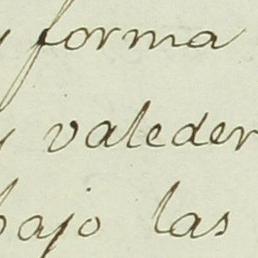 y forma
y valeder
bajo las